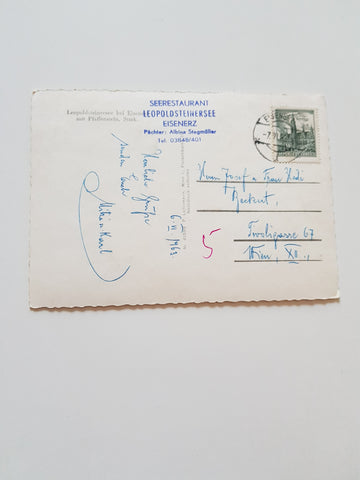 Leopoldsteinersee bei Eisenerz
mit Pfaffenstein, Stmk.
SEERESTAURANT
LEOPOLDSTEINERSEE
EISENERZ
Pächter: Albine Stegmüller
Tel. 03848/401
Herzliche Grüße
senden Euch
6. VI 1963
Herrn Josef u Frau Hedi
Tivoligasse 67
Wien, XII.,
5